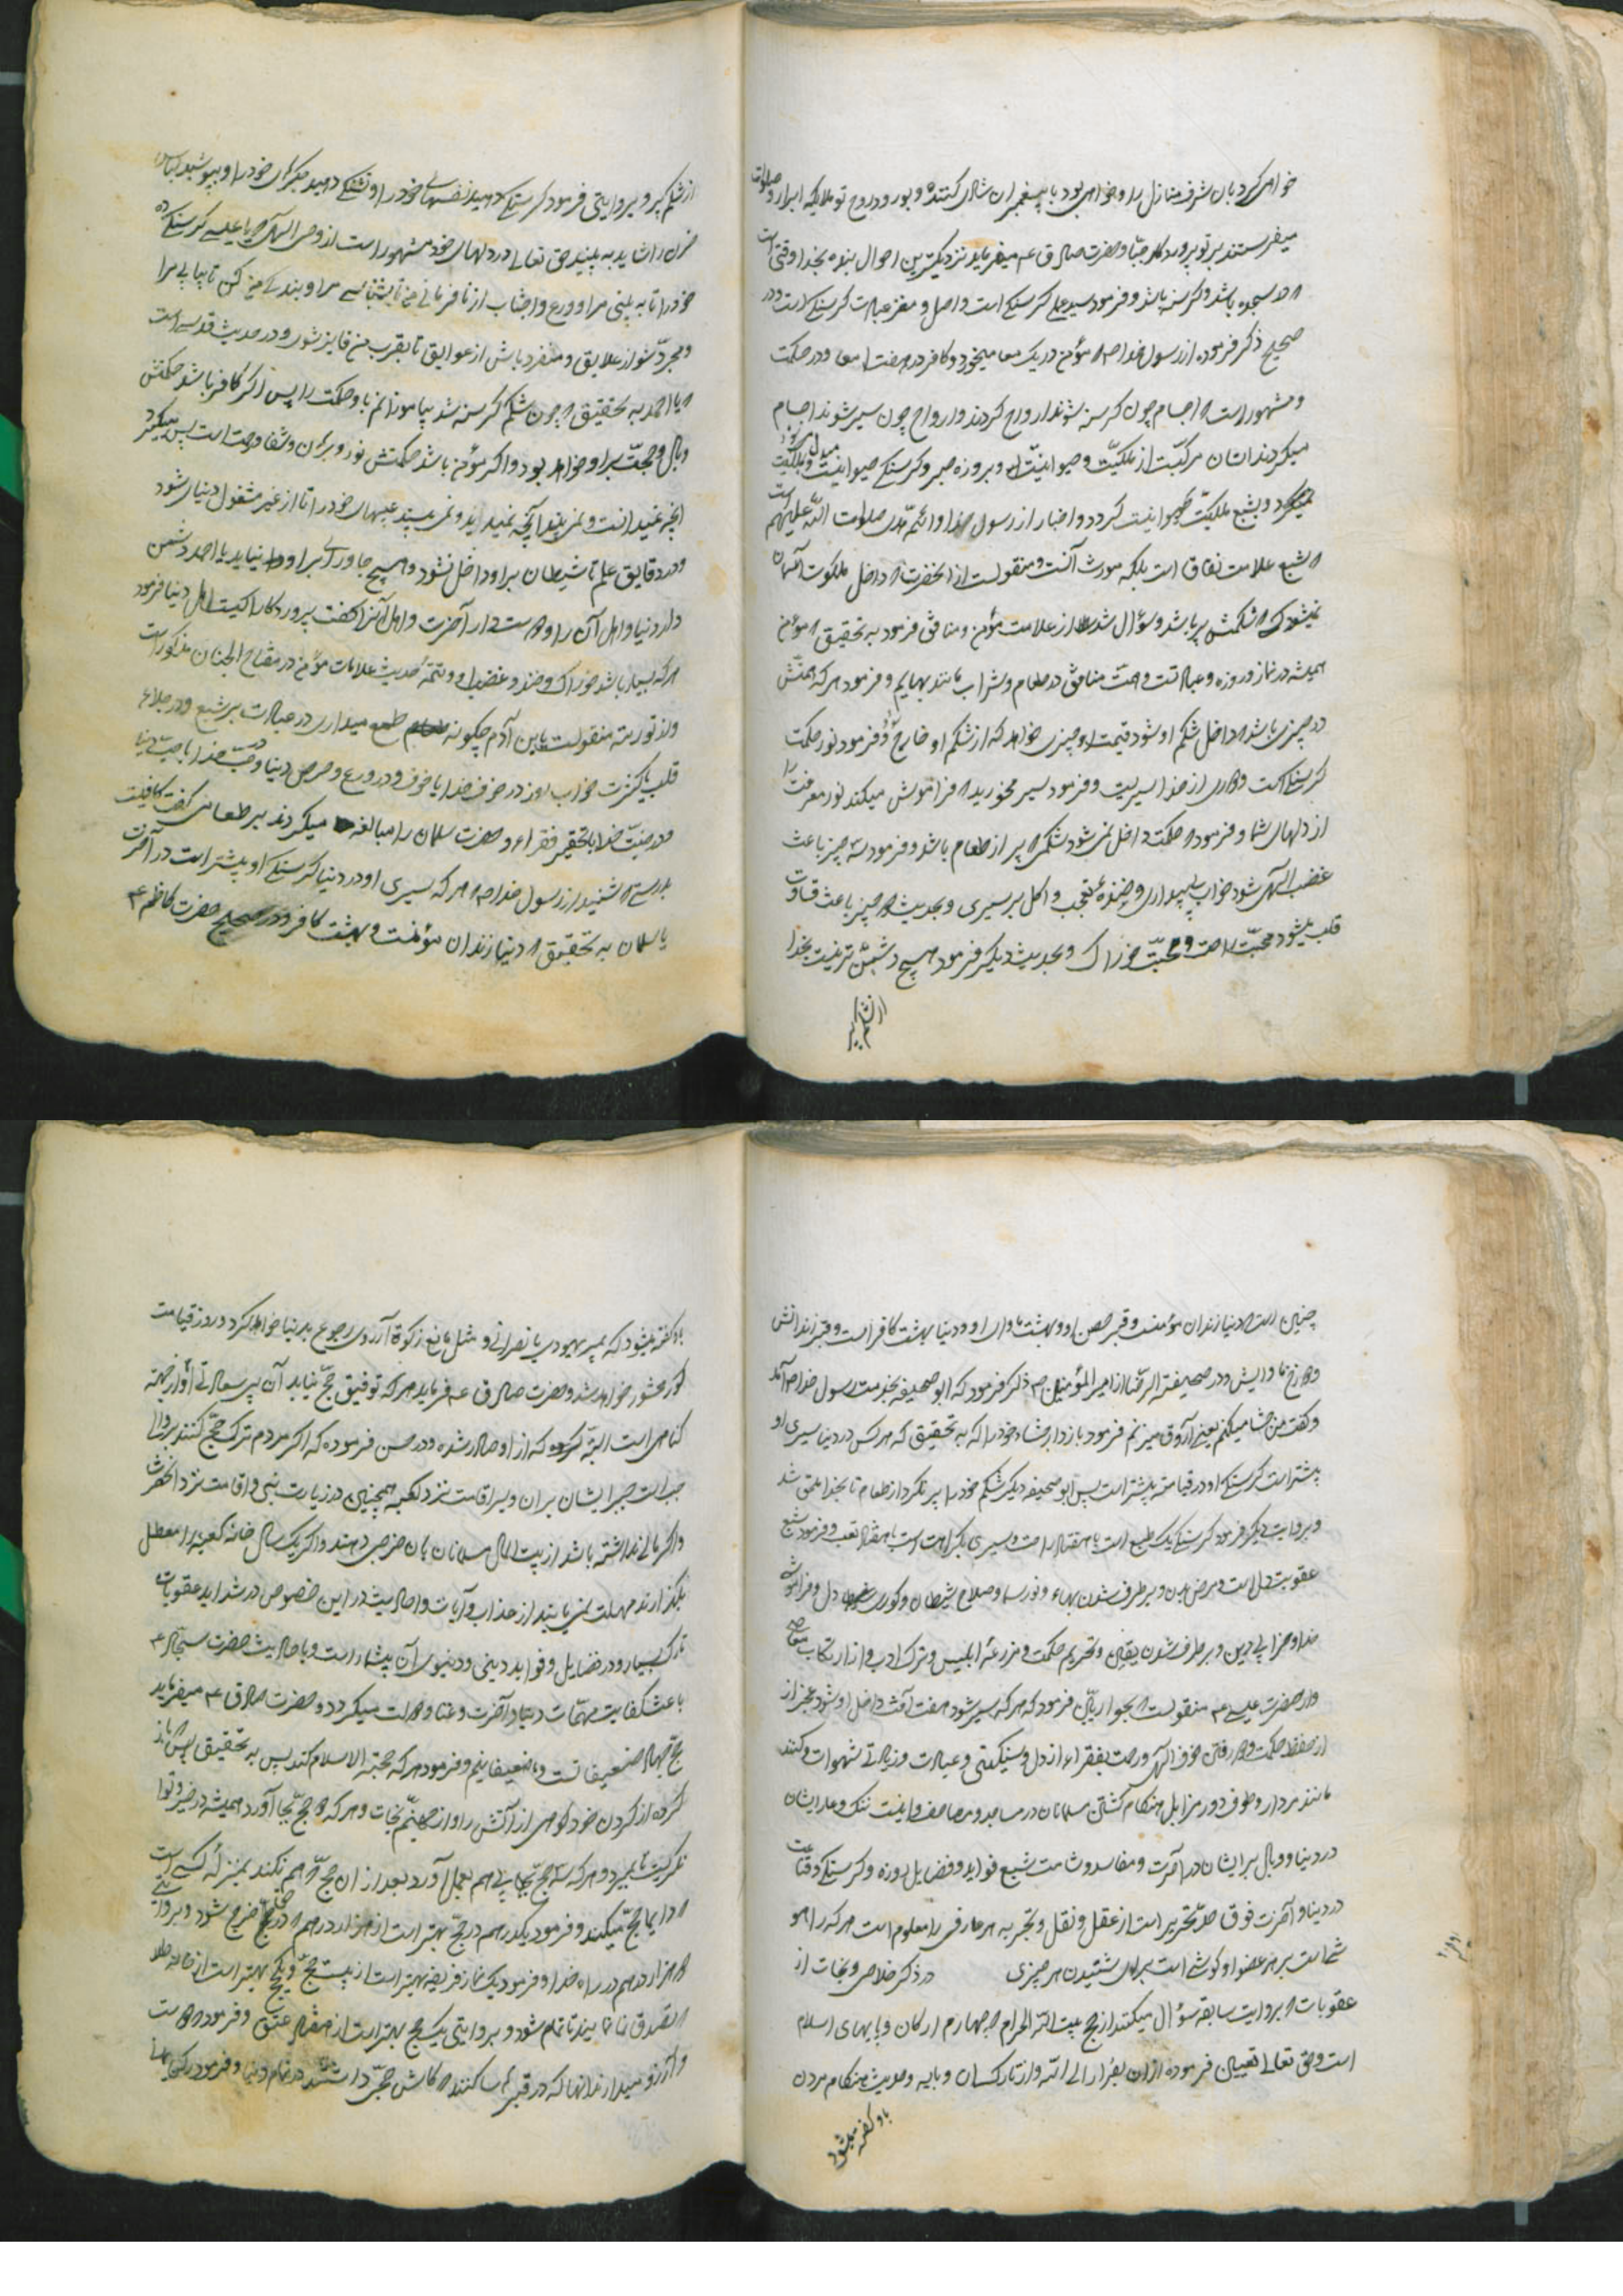 خواهی کرد بان شرف منازل را و خواهی بود با پیغمبران شادی کننده و بور ودروح تو ملایکه ابرار و صلوات
میفرستند بر تو پروردکار جبّا و حضرت صادق عم میفرماید نزدیکترین احوال بنده بخدا وقتی است
که در سجده باشد و کرسنه باشد و فرمود سید عمل کرسنکے است و اصل و مغز عبادت کرسنکے است و در
صحیح ذکر فرموده از رسول خدا ص که مؤمن در یک معا میخورد و کافر در هفت امعا و در حکمت
و مشهور است که اجسام چون کرسنه شوند ارواح کردند و ارواح چون سیر شوند اجسام
میکردند انسان مرکبّست از ملکیّت و حیوانیّت و بروزه صبر و کرسنکے حیوانیت مبدل بملکیت
میکردد و بشبع ملکیّت حیوانیت کردد و اخبار از رسول خدا و ائمّه هدی صلوات اللّه علیهم
که شبع علامت نفاق است بلکه مورث آنست و منقولست از انحضرت که داخل ملکوت آسمان
نمیشود کسی که شکمش پر باشد و سؤال شد از علامت مؤمن و منافق فرمود به تحقیق که مؤمن
همیشه در نماز و روزه و عبادتست و همّت منافق در طعام و شراب مانند بهایم و فرمود هر که همتّش
در چیزی باشد که داخل شکم او شود قیمت او چیزی خواهد که از شکم او خارج شود و فرمود نور حکمت
کرسنکے است و دوری از خدا سیریست و فرمود سیر مخورید که فراموش میکند نور معرفت را
از دلهای شما و فرمود که حکمت داخل نمی شود شکمی که پر از طعام باشد و فرمود سه چیز باعث
غضب الهی شود خواب بے بیداری و خندۀ بے تعجب و اکل بر سیری و بحدیث سه چیز باعث قساوت
قلب میشود محبّت راحت و محبّت خوراک و بحدیث دیکر فرمود هیچ دشمن تر نیست بخدا
از شکم پر
از شکم پر و بروایتی فرمود کرسنکے دهید نفسهای خود را و تشنکے دهید جکرهای خود را و بپوشید لباس
خزن را شاید به بینید حق تعالے در دلهای خود مشهور است از وحی الهی که یا عیسے کرسنکے ده
خود را تا به بینی مرا و ورع و اجتناب از نافرمانے من تا بشناسے مرا و بندکے من کن تا بیابی مرا
و مجردّ شو از علایق و منفرد باش از عوایق تا بقرب من فایز شوی و در حدیث قدسے است
که یا احمد به تحقیق که چون شکم کرسنه شد بیاموزانم باو حکمت را پس اکر کافر باشد حکمتش
وبال و حجتّ بر او خواهد بود و اکر مؤمن باشد حکمتش نور و برهان و شفا و رحمت است پس میکیرد
انچه نمیدانست و نمی بیند انچه نمیدید و نمی بیند عیبهای خود را تا از غیر مشغول دنیا شود
و در دقایق علم تا شیطان بر او داخل نشود و هیچ جا ورای بر او راه نیابد یا احمد دشمن
دار دنیا و اهل آن را و دوست دار آخرت و اهل آنرا کفت پروردکارا کیست اهل دنیا فرمود
هر که بسیار باشد خوراک و خنده و غضب او و تتمهٔ حدیث علامات مؤمن در مفتاح الجنان مذکور است
و از توریته منقولست یابن آدم چکونه طمع میداری در عبادت بر شبع و در جلاء
قلب با کثرت خواب روز در خوف خدا با خوف و در ورع و حرص دنیا و در حبّ خدا با حبّ دنیا
و در رضای خدا با تحقیر فقراء و حضرت سلمان را مبالغه میکردند بر طعامی کفت کافیست
بدرستی که شنیدم از رسول خدا ص که هر که سیری او در دنیا کرسنکے او بیشتر است در آخرت
یا سلمان به تحقیق که دنیا زندان مؤمنست و بهشت کافر و در صحیح حضرت کاظم ع
چنین است که دنیا زندان مؤمنست و قبر حصن او و بهشت ماوای او و دنیا بهشت کافر است و قبر زندانش
و دوزخ ماوایش و در صحیفة الرضّا از امیرالمؤمنین ع ذکر فرمود که ابو جحیفه بخدمت رسول خدا ص آمد
و کفت من جشا میکنم یعنے آروق میزنم فرمود بازدار جشاء خود را که به تحقیق که هر کس در دنیا سیری او
بیشتر است کرسنکے او در قیامت بیشتر است پس ابو جحیفه دیکر شکم خود را پر نکرد از طعام تا بخدا ملحق شد
و بروایت دیکر فرمود کرسنکے یک طبع است با هفتاد راحت و سیری یک راحت است با هفتاد تعب و فرمود شبع
عقوبت دل است و مرض بدن و برطرف شدن بهاء و نور سیما و صلاح شیطان و کوری دل و فراموشی
خدا و خرابے دین و برطرف شدن یقین و تحریم حکمت و مزرعۀ ابلیس و ترک ادب و از ارتکاب معاصی
و از حضرت عیسے ع منقولست بحواریّان فرمود که هر که سیر شود هفت آفت داخل او شود عجز از
از حفظ حکمت و در رفتن خوف الهی و رحمت بفقراء از دل و سنکینی و عبادت و زیادتے شهوات و کنند
مانند مردار و طوف در مزابل هنکام کشتن مسلمانان در مساجد و مصاحف و اینست ننک و عار ایشان
در دنیا و وبال بر ایشان در آخرت و مفاسد و شامت شبع فواید و فضایل روزه و کرسنکے و قناعت
در دنیا و آخرت فوق حدّ تحریر است از عقل و نقل و تجربه بهر عارفی را معلوم است هر که را هو
شماست بر هر عضو او کوشے است برای شنیدن هر چیزی در ذکر خلاصی و نجات از
عقوبات که بروایت سابقه سؤال میکنند از حج بیت اللّه الحرام که چهارم ارکان و پایهای اسلام
است و حق تعالے تعبیر فرموده از ان بفرار الے اللّه و از تارکسان و بابه وحدیث هنکام مردن
باو کفته میشود
باو کفته میشود که بمیر یهودی یا نصرانے و مثل مانع زکوة آرزوی رجوع بدنیا خواهد کرد و روز قیامت
کور محشور خواهد شد و حضرت صادق عم فرماید هر که توفیق حجّ نیابد آن بی سعادتے او از جهته
کناهی است البتّه که از او صادر شده و در حسن فرموده که اکر مردم ترک حجّ کنند بر والے
واجب است جبر ایشان بران و براقامت نزد کعبه همچنین در زیارت نبی و اقامت نزد انحضرت
و اکر مالے نداشته باشند از بیت المال مسلمانان بان خرجی دهند و اکر یک سال خانه کعبه را معطل
بکذارند مهلت نمی یابند از عذاب و آیات و احادیث در این خصوص در شداید عقوبات
تارک بسیار و در فضایل و فواید دینی و دنیوی آن بیشمار است و باحادیث حضرت سجّاد ع
باعث کفایت مهمّات دنیا و آخرت و غنا و دولت میکردد و حضرت صادق ع میفرماید
حج جهاد ضعیفانست و ما ضعیفانیم و فرمود هر که حجة الاسلام کند پس به تحقیق باز
کرده از کردن خود کوهی از آتش را و از جهنّم نجات و هر که دو حجّ بجا آورد همیشه در خیر و ثواب
تا بمیرد و هر که سه حج بجا پی هم بعمل آورد بعد از ان حجّ هم نکند بمنزلۀ کسے است
که دایما حجّ میکند و فرمود یکدرهم در حجّ بهتر است از هزار درهم که در غیر حج خرج شود و بروایتے
دو هزار درهم در راه خدا و فرمود یک نماز فریضه بهتر است از بیست حجّ و یکحج بهتر است از خانه طلا
که تصدق نمایند تا تمام شود و بروایتی یک حج بهتر است از هفتاد عتق و فرمود دوست
و آرزو میدارند انها که در قبر ساکنند که کاش حجّی داشتند در تمام دنیا و فرمود رکبانها